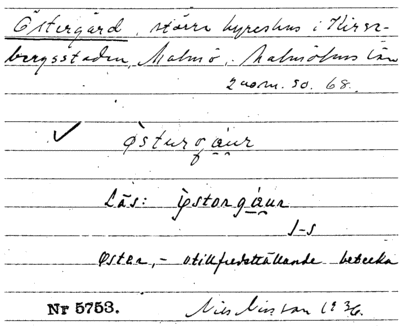 Östergård, större hyreshus i Kirse-
bergsstaden, Malmö, Malmöhus län
2 nom. so. 68.
✓ östurgäur
Läs: östorgáur
1-s
Öster,- otillfredsställande beteckn
Nr 5753. Nils Nilsson 1936.